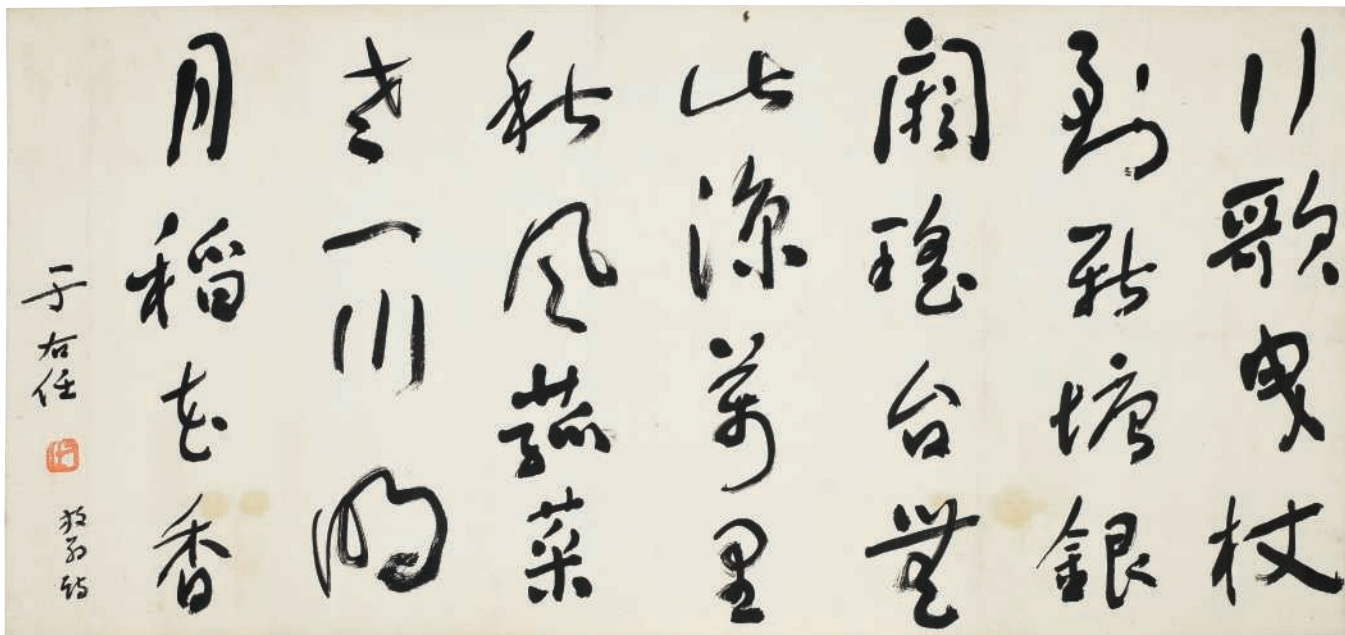 行歌曳杖
到新塘銀
闕瑤台無
此涼萬里
秋風菰菜
老一川明
月稻花香
于右任
放翁詩